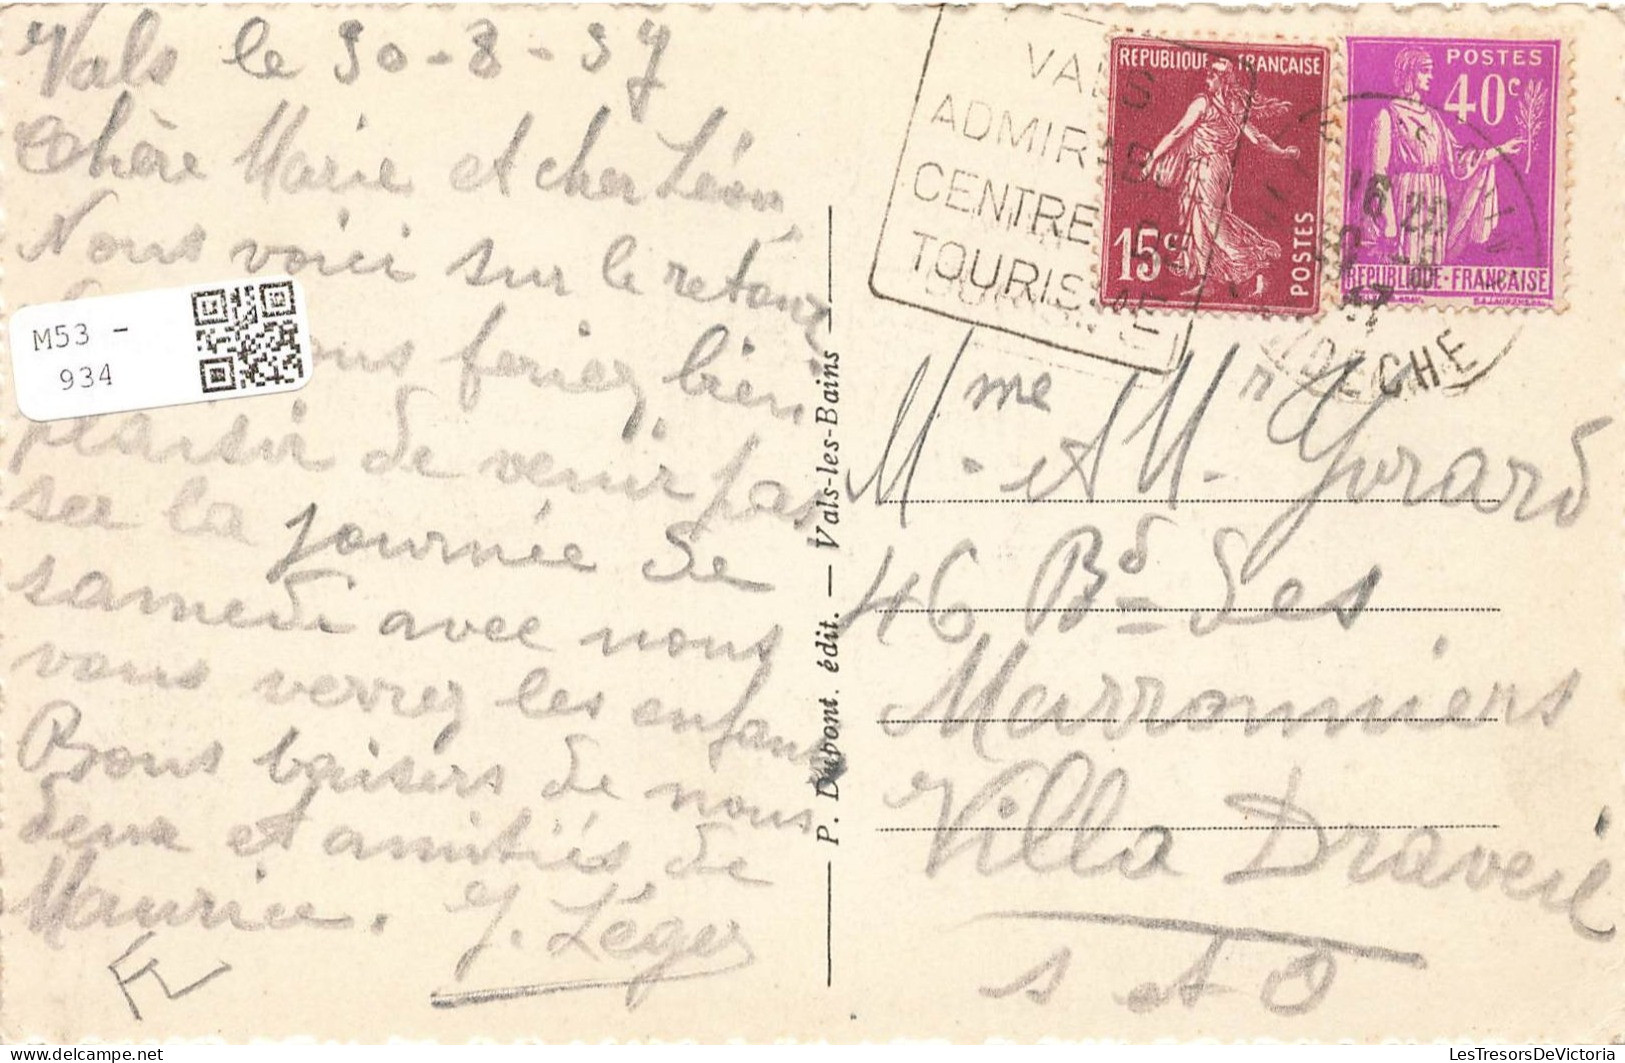 Vals le 30-8-37
Chère Marie et cher Léon
Nous voici sur le retour
vous feriez bien
plaisir de venir pas
ser la journée de
samedi avec nous
vous verrez les enfants
Bons baisers de nous
deux et amitiés de
Maurice. J. Léger
FL
M53 -
934
P. Dupont. édit. — Vals-les-Bains
VALS
ADMIRABLE
CENTRE DE
TOURISME
REPUBLIQUE FRANÇAISE
15c
POSTES
POSTES
40c
REPUBLIQUE-FRANÇAISE
16 20
30 -8
37
ARDECHE
Mme et Mr Gérard
46 Bd des
Marronniers
Villa Draveil
S et O
LesTresorsDeVictoria